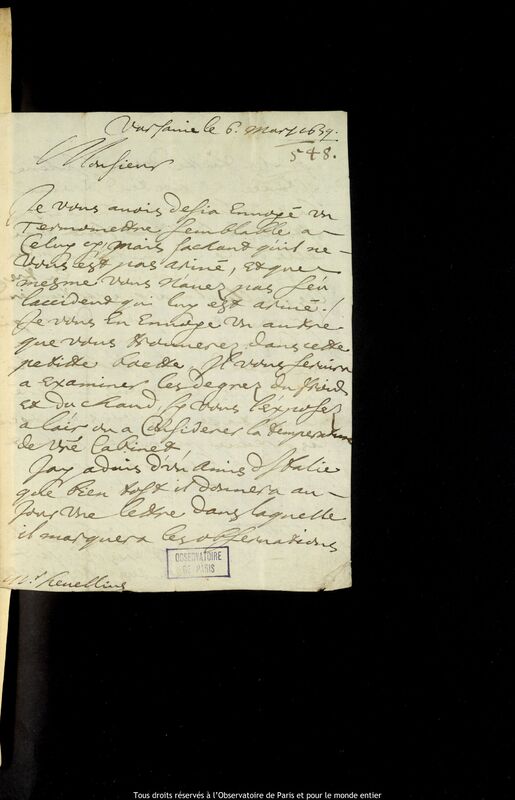 Varsauie le 6. Mars 1659.
548.
Monsieur
Je vous auois desia Enuoyé vn
Termomettre semblable a
Celuy cy, mais sachant qu'il ne
vous est pas ariué, et que
mesme vous n'auez pas sceu
l'accident qui luy est ariué.
Je vous En Enuoye vn autre
que vous trouuerez dans cette
petitte boette Il vous seruira
a examiner les degrez du froid
et du chaud sy vous l'exposez
a l'air ou a Considerer la temperature
de vre Cabinet,
J'ay aduis d'vn Amis d'Italie
que bien tost il donnera au
Jour vne lettre dans laquelle
il marquera les obseruations
OBSERVATOIRE
DE PARIS
Mr. Heuellius
Tous droits réservés à l'Observatoire de Paris et pour le monde entier